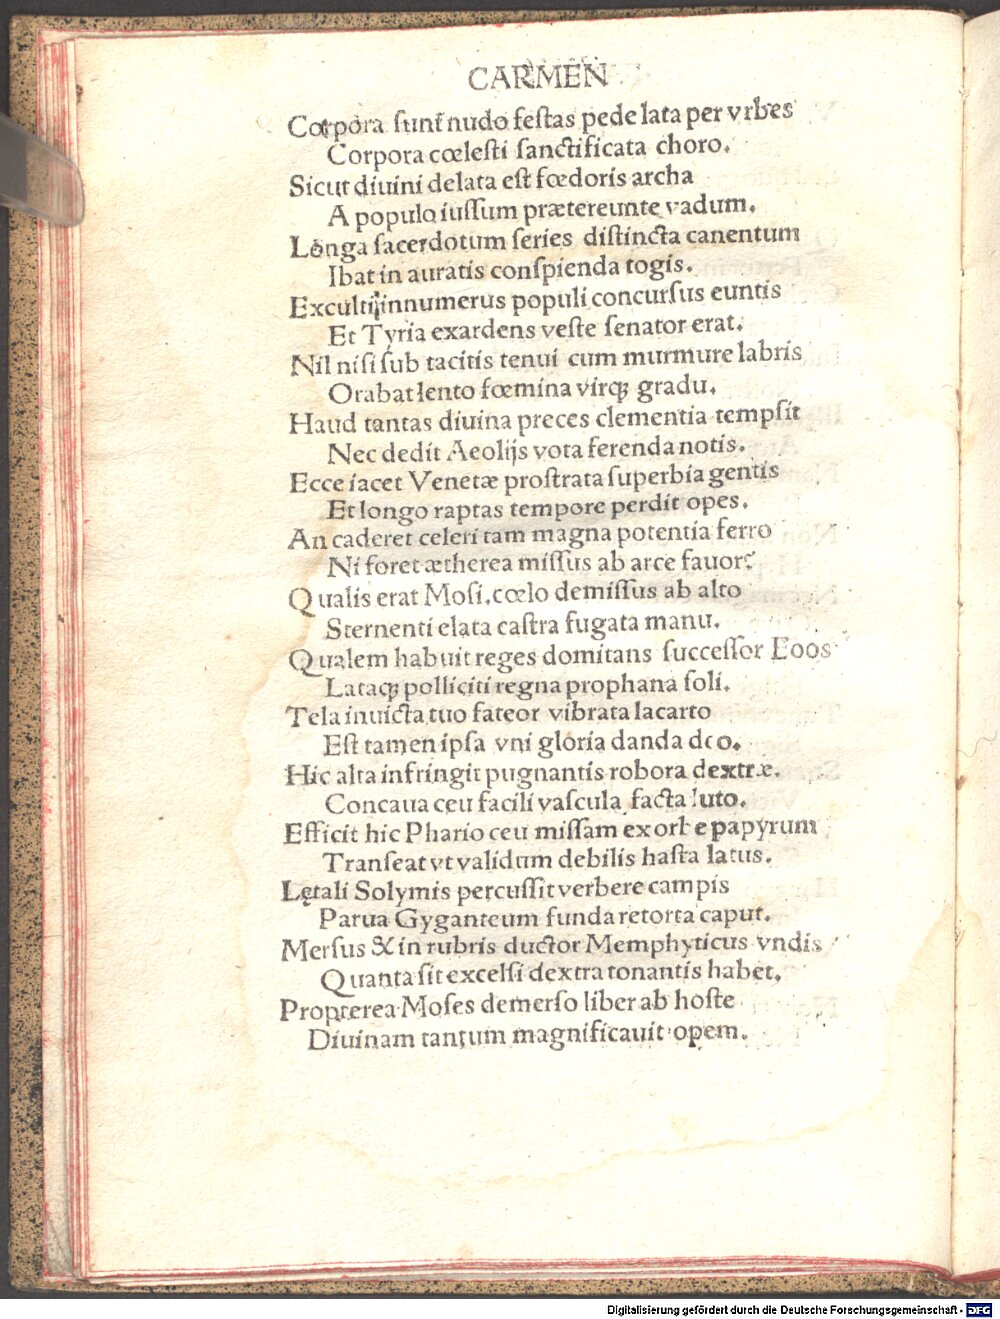 CARMEN
Corpora sunt nudo festas pede lata per vrbes
Corpora cœlesti sanctificata choro.
Sicut diuini delata est fœdoris archa
A populo iussum prætereunte vadum.
Longa sacerdotum series distincta canentum
Ibat in auratis conspienda togis.
Excultiꝗ innumerus populi concursus euntis
Et Tyria exardens veste senator erat.
Nil nisi sub tacitis tenui cum murmure labris
Orabat lento fœmina virqꝫ gradu.
Haud tantas diuina preces clementia tempsit
Nec dedit Aeolijs vota ferenda notis.
Ecce iacet Venetæ prostrata superbia gentis
Et longo raptas tempore perdit opes.
An caderet celeri tam magna potentia ferro
Ni foret ætherea missus ab arce fauor?
Qualis erat Mosi, cœlo demissus ab alto
Sternenti elata castra fugata manu.
Qualem habuit reges domitans successor Eoos
Lataqꝫ polliciti regna prophana soli.
Tela inuicta tuo fateor vibrata lacarto
Est tamen ipsa vni gloria danda deo.
Hic alta infringit pugnantis robora dextræ.
Concaua ceu facili vascula facta luto.
Efficit hic Phario ceu missam ex orbe papyrum
Transeat vt validum debilis hasta latus.
Lętali Solymis percussit verbere campis
Parua Gyganteum funda retorta caput.
Mersus & in rubris ductor Memphyticus vndis
Quanta sit excelsi dextra tonantis habet.
Propterea Moses demerso liber ab hoste
Diuinam tantum magnificauit opem.
Digitalisierung gefördert durch die Deutsche Forschungsgemeinschaft - DFG